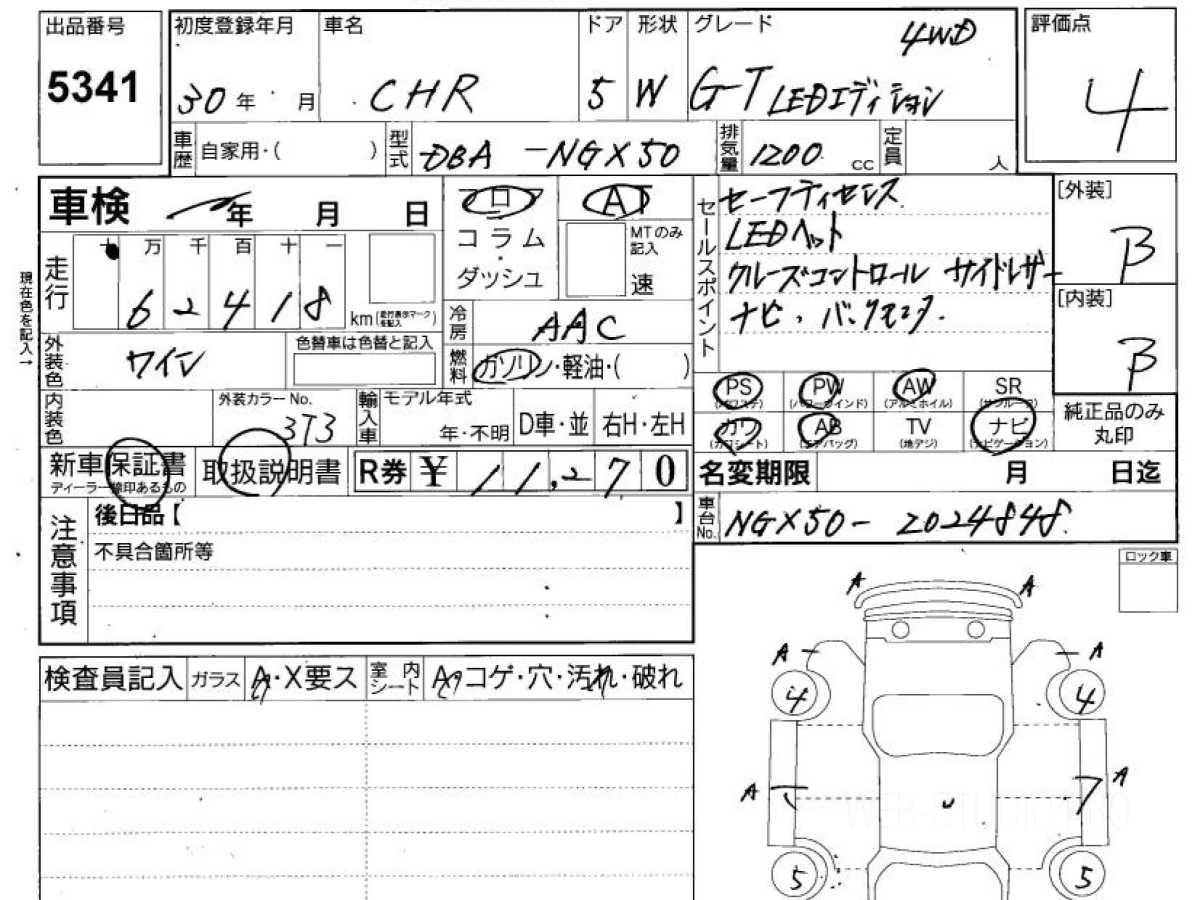 出品番号 初度登録年月 車名 ドア 形状 グレード 評価点
5341 30年 月 CHR 5 W G-T LEDエディション 4WD 4
車歴 自家用・( ) 型式 DBA-NGX50 排気量 1200 cc 定員 人
車検 年 月 日 フロア AT セールスポイント セーフティセンス [外装]
コラム・ダッシュ MTのみ記入 速 LEDヘット B
現在色を記入→ 走行 十 万 千 百 十 一 クルーズコントロール サイドレザー [内装]
6 2 4 1 8 km(走行表示マークを記入) 冷房 AAC ナビ, バックモニタ. B
外装色 ワイン 色替車は色替と記入 燃料 ガソリン・軽油・( )
PS (パワステ) PW (パワーウインド) AW (アルミホイル) SR (サンルーフ)
内装色 外装カラーNo. 3T3 輸入車 モデル年式 年・不明 D車・並 右H・左H カワ (カワシート) AB (エアバッグ) TV (地デジ) ナビ (ナビゲーション) 純正品のみ丸印
新車保証書 ディーラー捺印あるもの 取扱説明書 R券 ¥ 11,270 名変期限 月 日迄
注意事項 後日品【 】 車台No. NGX50-2024848
不具合箇所等
ロック車
A A
検査員記入 ガラス A・X要ス 室内シート コゲ・穴・汚れ・破れ A A
4 4
A A
WEB-STUDIO PRO
5 5